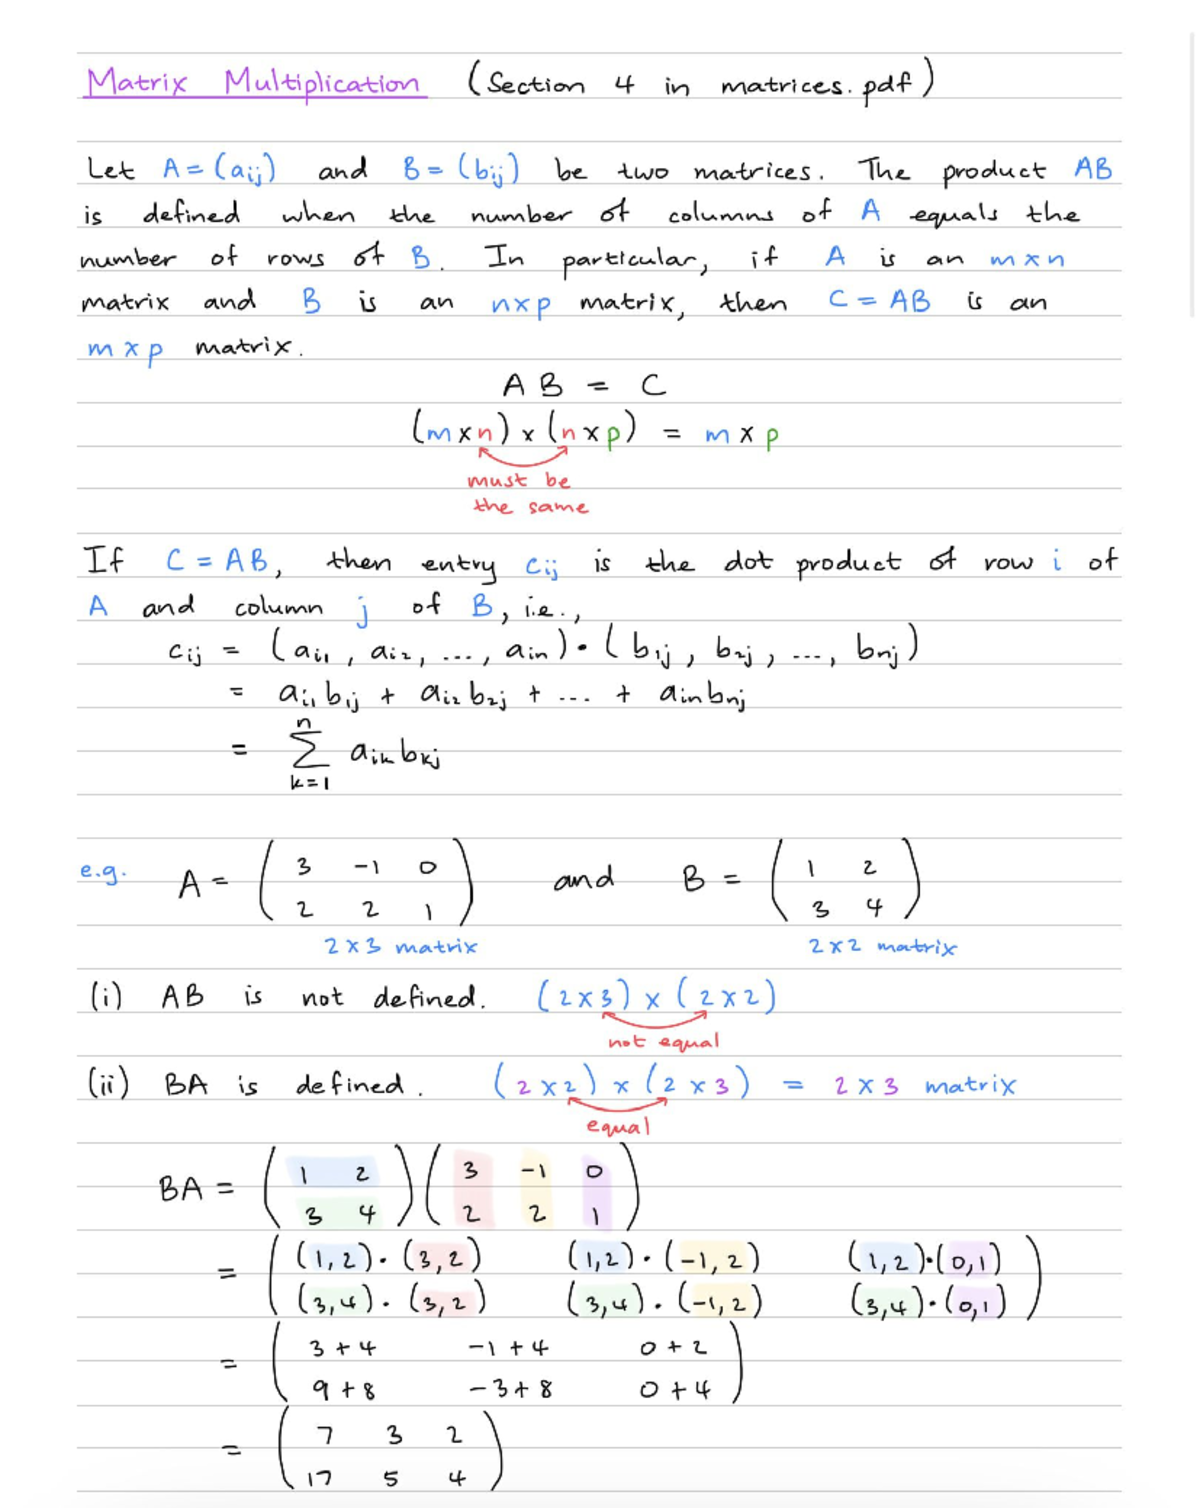 Matrix Multiplication (Section 4 in matrices.pdf)
Let A = (aij) and B = (bij) be two matrices. The product AB
is defined when the number of columns of A equals the
number of rows of B. In particular, if A is an m×n
matrix and B is an n×p matrix, then C = AB is an
m×p matrix.
A B = C
(m×n) × (n×p) = m×p
must be
the same
If C = AB, then entry cij is the dot product of row i of
A and column j of B, i.e.,
cij = (ai1, ai2, ..., ain) · (b1j, b2j, ..., bnj)
= ai1 b1j + ai2 b2j + ... + ain bnj
n
= Σ aik bkj
k=1
e.g. A = ( 3 -1 0 ) and B = ( 1 2 )
( 2 2 1 ) ( 3 4 )
2×3 matrix 2×2 matrix
(i) AB is not defined. (2×3) × (2×2)
not equal
(ii) BA is defined. (2×2) × (2×3) = 2×3 matrix
equal
BA = ( 1 2 ) ( 3 -1 0 )
( 3 4 ) ( 2 2 1 )
= ( (1,2)·(3,2) (1,2)·(-1,2) (1,2)·(0,1) )
( (3,4)·(3,2) (3,4)·(-1,2) (3,4)·(0,1) )
= ( 3+4 -1+4 0+2 )
( 9+8 -3+8 0+4 )
= ( 7 3 2 )
( 17 5 4 )